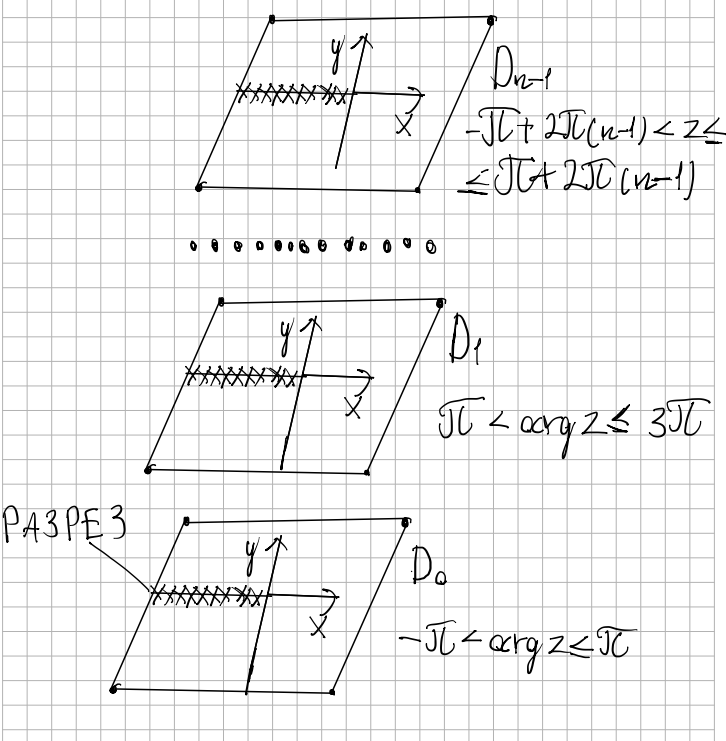 y
x
D_{n-1}
-π + 2π(n-1) < z ≤
≤ π + 2π(n-1)
y
x
D_1
π < arg z ≤ 3π
РАЗРЕЗ
y
x
D_0
-π < arg z ≤ π